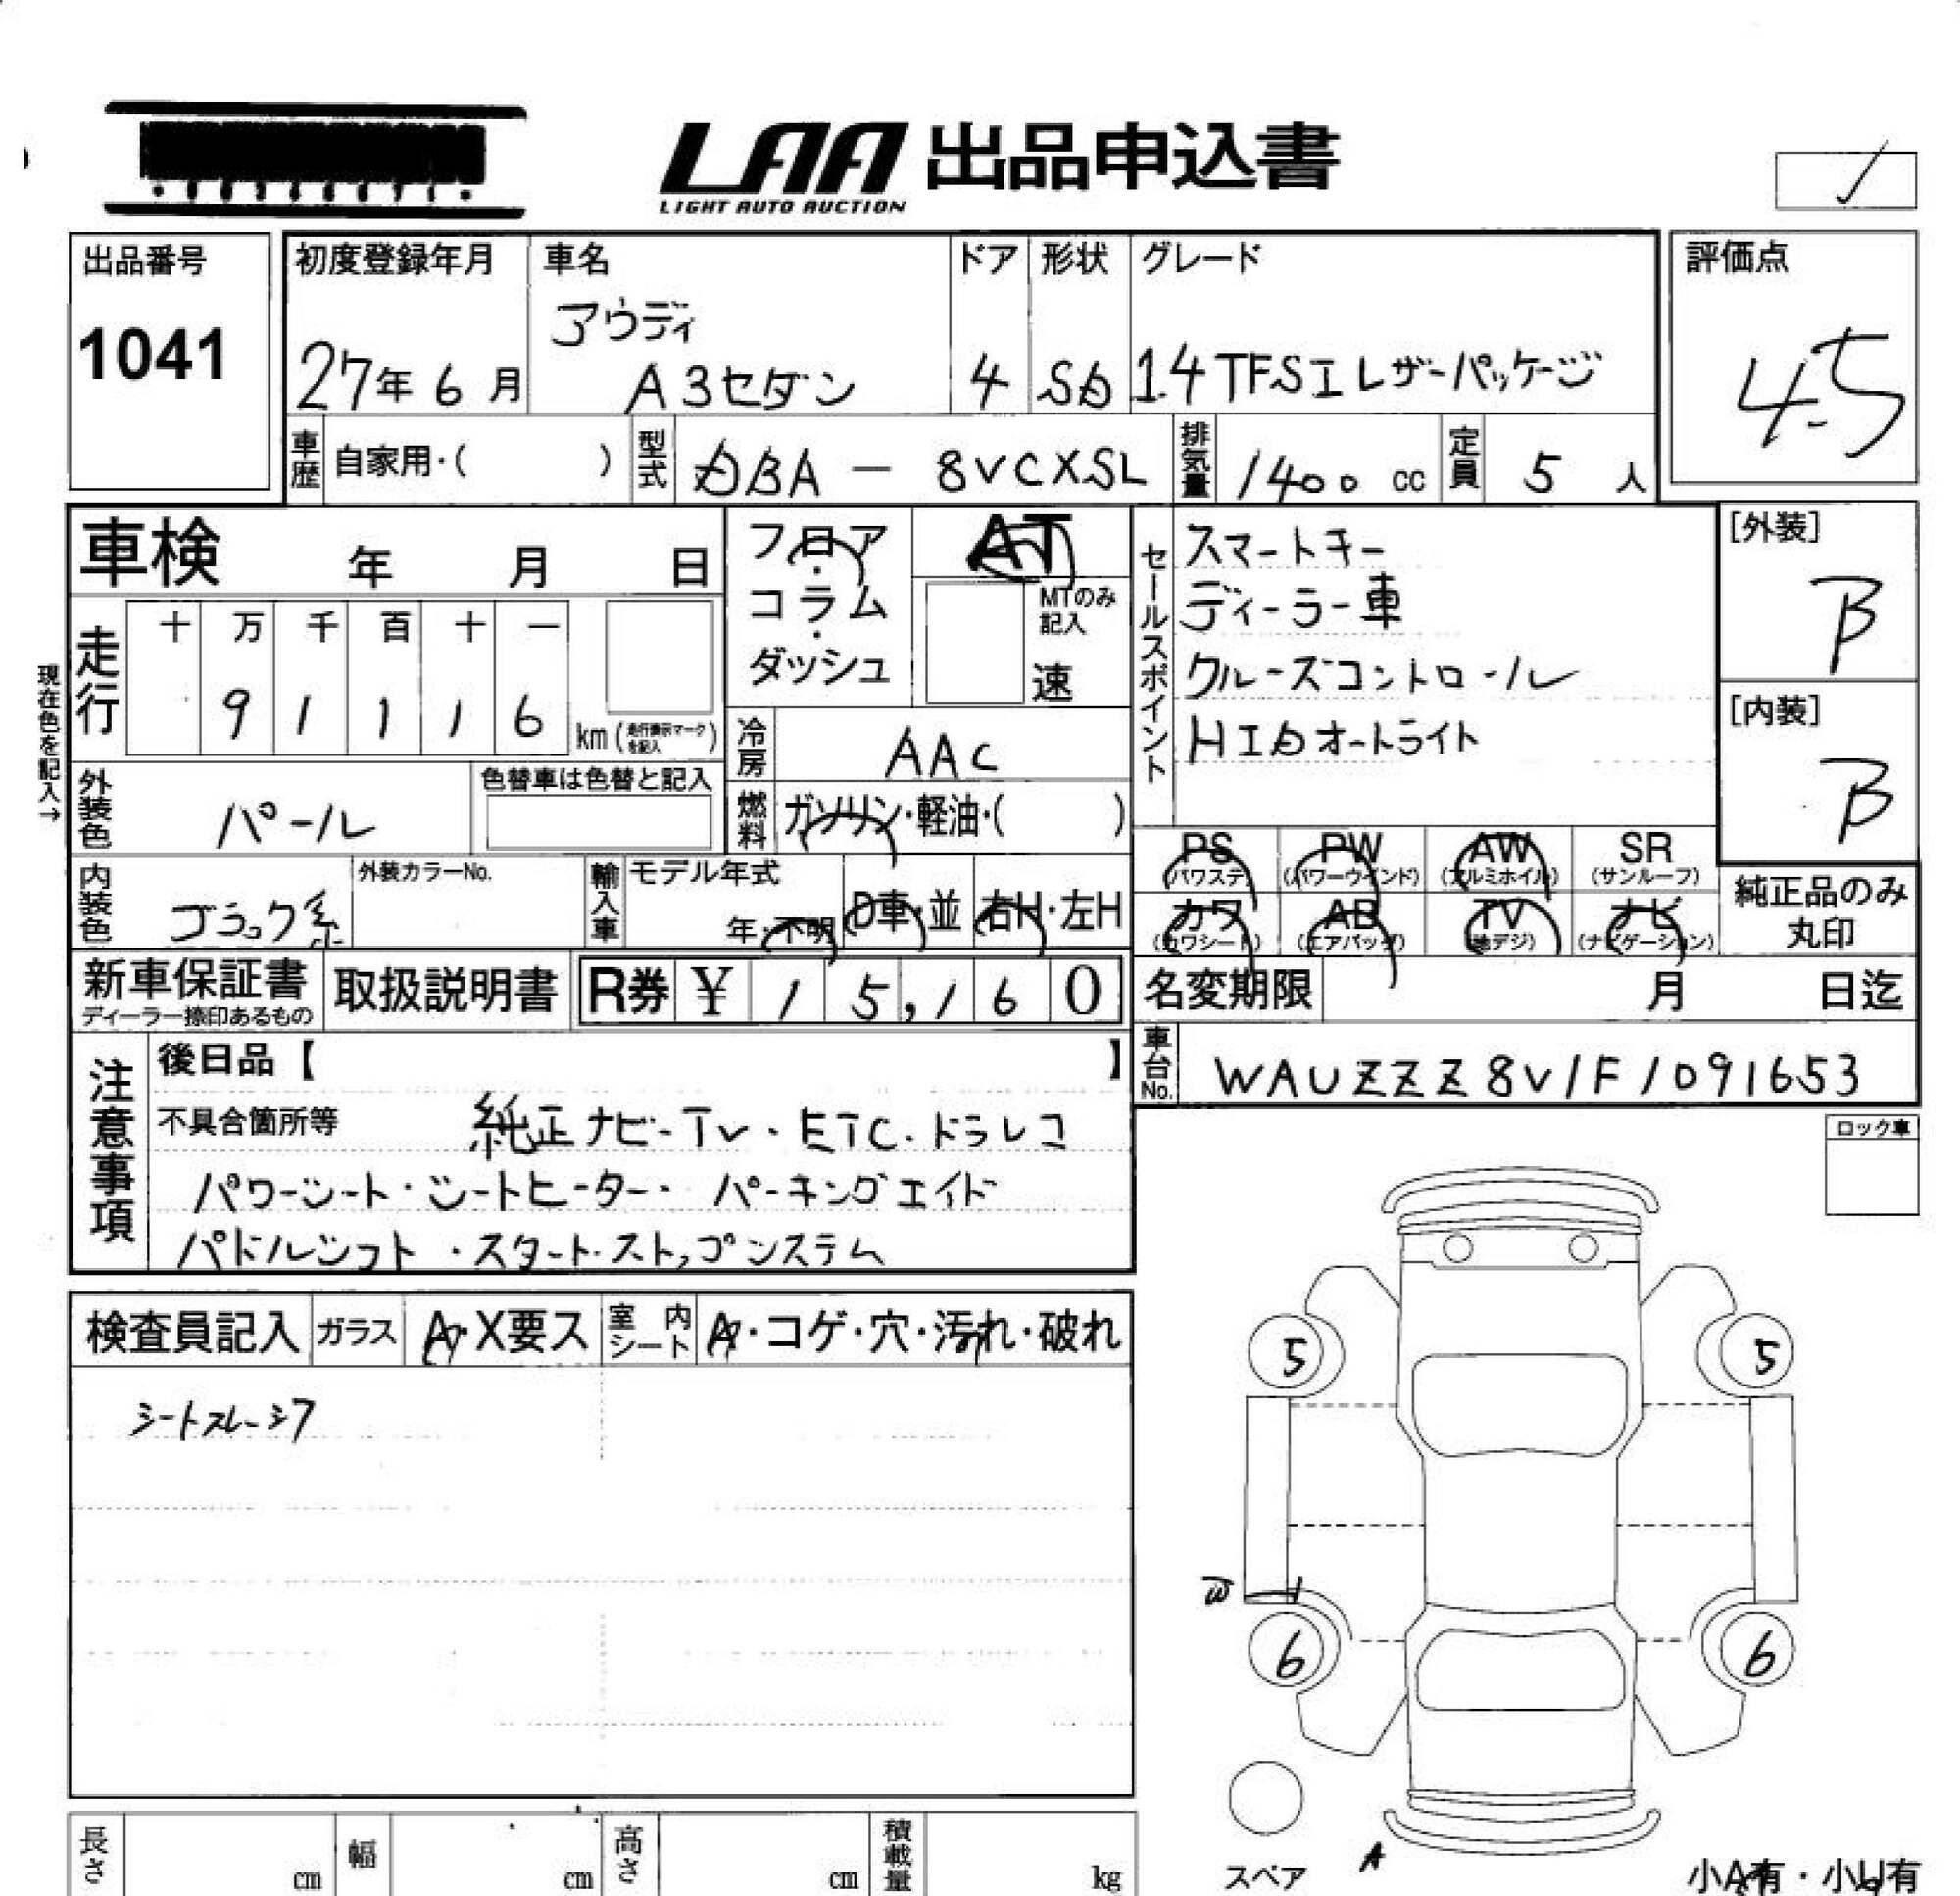 LAA 出品申込書
LIGHT AUTO AUCTION
出品番号
1041
初度登録年月
27年 6 月
車名
アウディ
A3セダン
ドア
4
形状
Sb
グレード
1.4 TFSI レザーパッケージ
評価点
4.5
車歴 自家用・( )
型式 DBA - 8VCXSL
排気量 1400 cc
定員 5 人
車検 年 月 日
フロア・コラム・ダッシュ
AT
MTのみ記入
速
セールスポイント
スマートキー
ディーラー車
クルーズコントロール
HIDオートライト
[外装]
B
[内装]
B
現在色を記入→
走行
十 万 千 百 十 一
9 1 1 1 6
km (走行表示マークを記入)
冷房 AAC
燃料 ガソリン・軽油・( )
外装色 パール
色替車は色替と記入
内装色 ブラック系
外装カラーNo.
輸入車
モデル年式
年・不明
D車・並
右H・左H
PS (パワステ)
PW (パワーウインド)
AW (アルミホイル)
SR (サンルーフ)
カワ (カワシート)
AB (エアバッグ)
TV (地デジ)
ナビ (ナビゲーション)
純正品のみ
丸印
新車保証書
ディーラー捺印あるもの
取扱説明書
R券 ¥ 1 5 , 1 6 0
名変期限 月 日迄
車台No. WAUZZZ8V1F1091653
注意事項
後日品【 】
不具合箇所等 純正ナビ・TV・ETC・ドラレコ
パワーシート・シートヒーター・パーキングエイド
パドルシフト・スタートストップシステム
ロック車
検査員記入
ガラス A・X要ス
室内シート A・コゲ・穴・汚れ・破れ
シートスレ・シワ
5
5
W1
6
6
A
スペア
小A有・小U有
長さ cm
幅 cm
高さ cm
積載量 kg